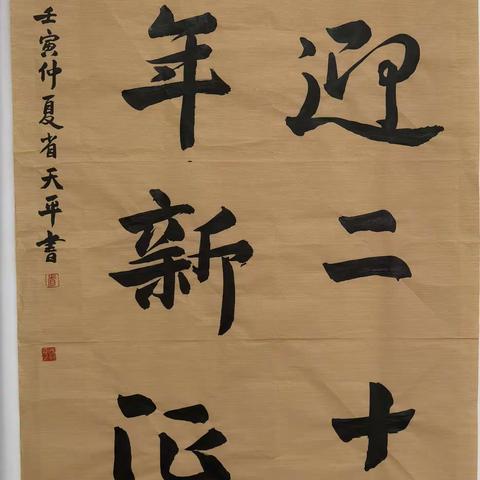 迎二十
年新征
壬寅仲夏省天平書